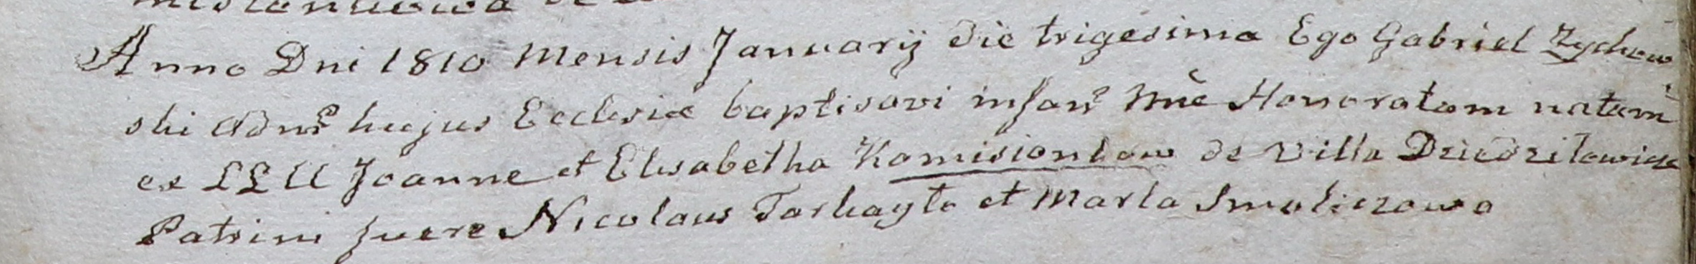 Anno Dni 1810 Mensis January die trigesima Ego Gabriel Zychow
ski Admr hujus Ecclesiæ baptisavi infan. Nne Honoratam natam
ex LLLL Joanne et Elisabetha Kamisionkow de Villa Dziedzilowicze
Patrini fuere Nicolaus Tarkayło et Marta Smoliczowa